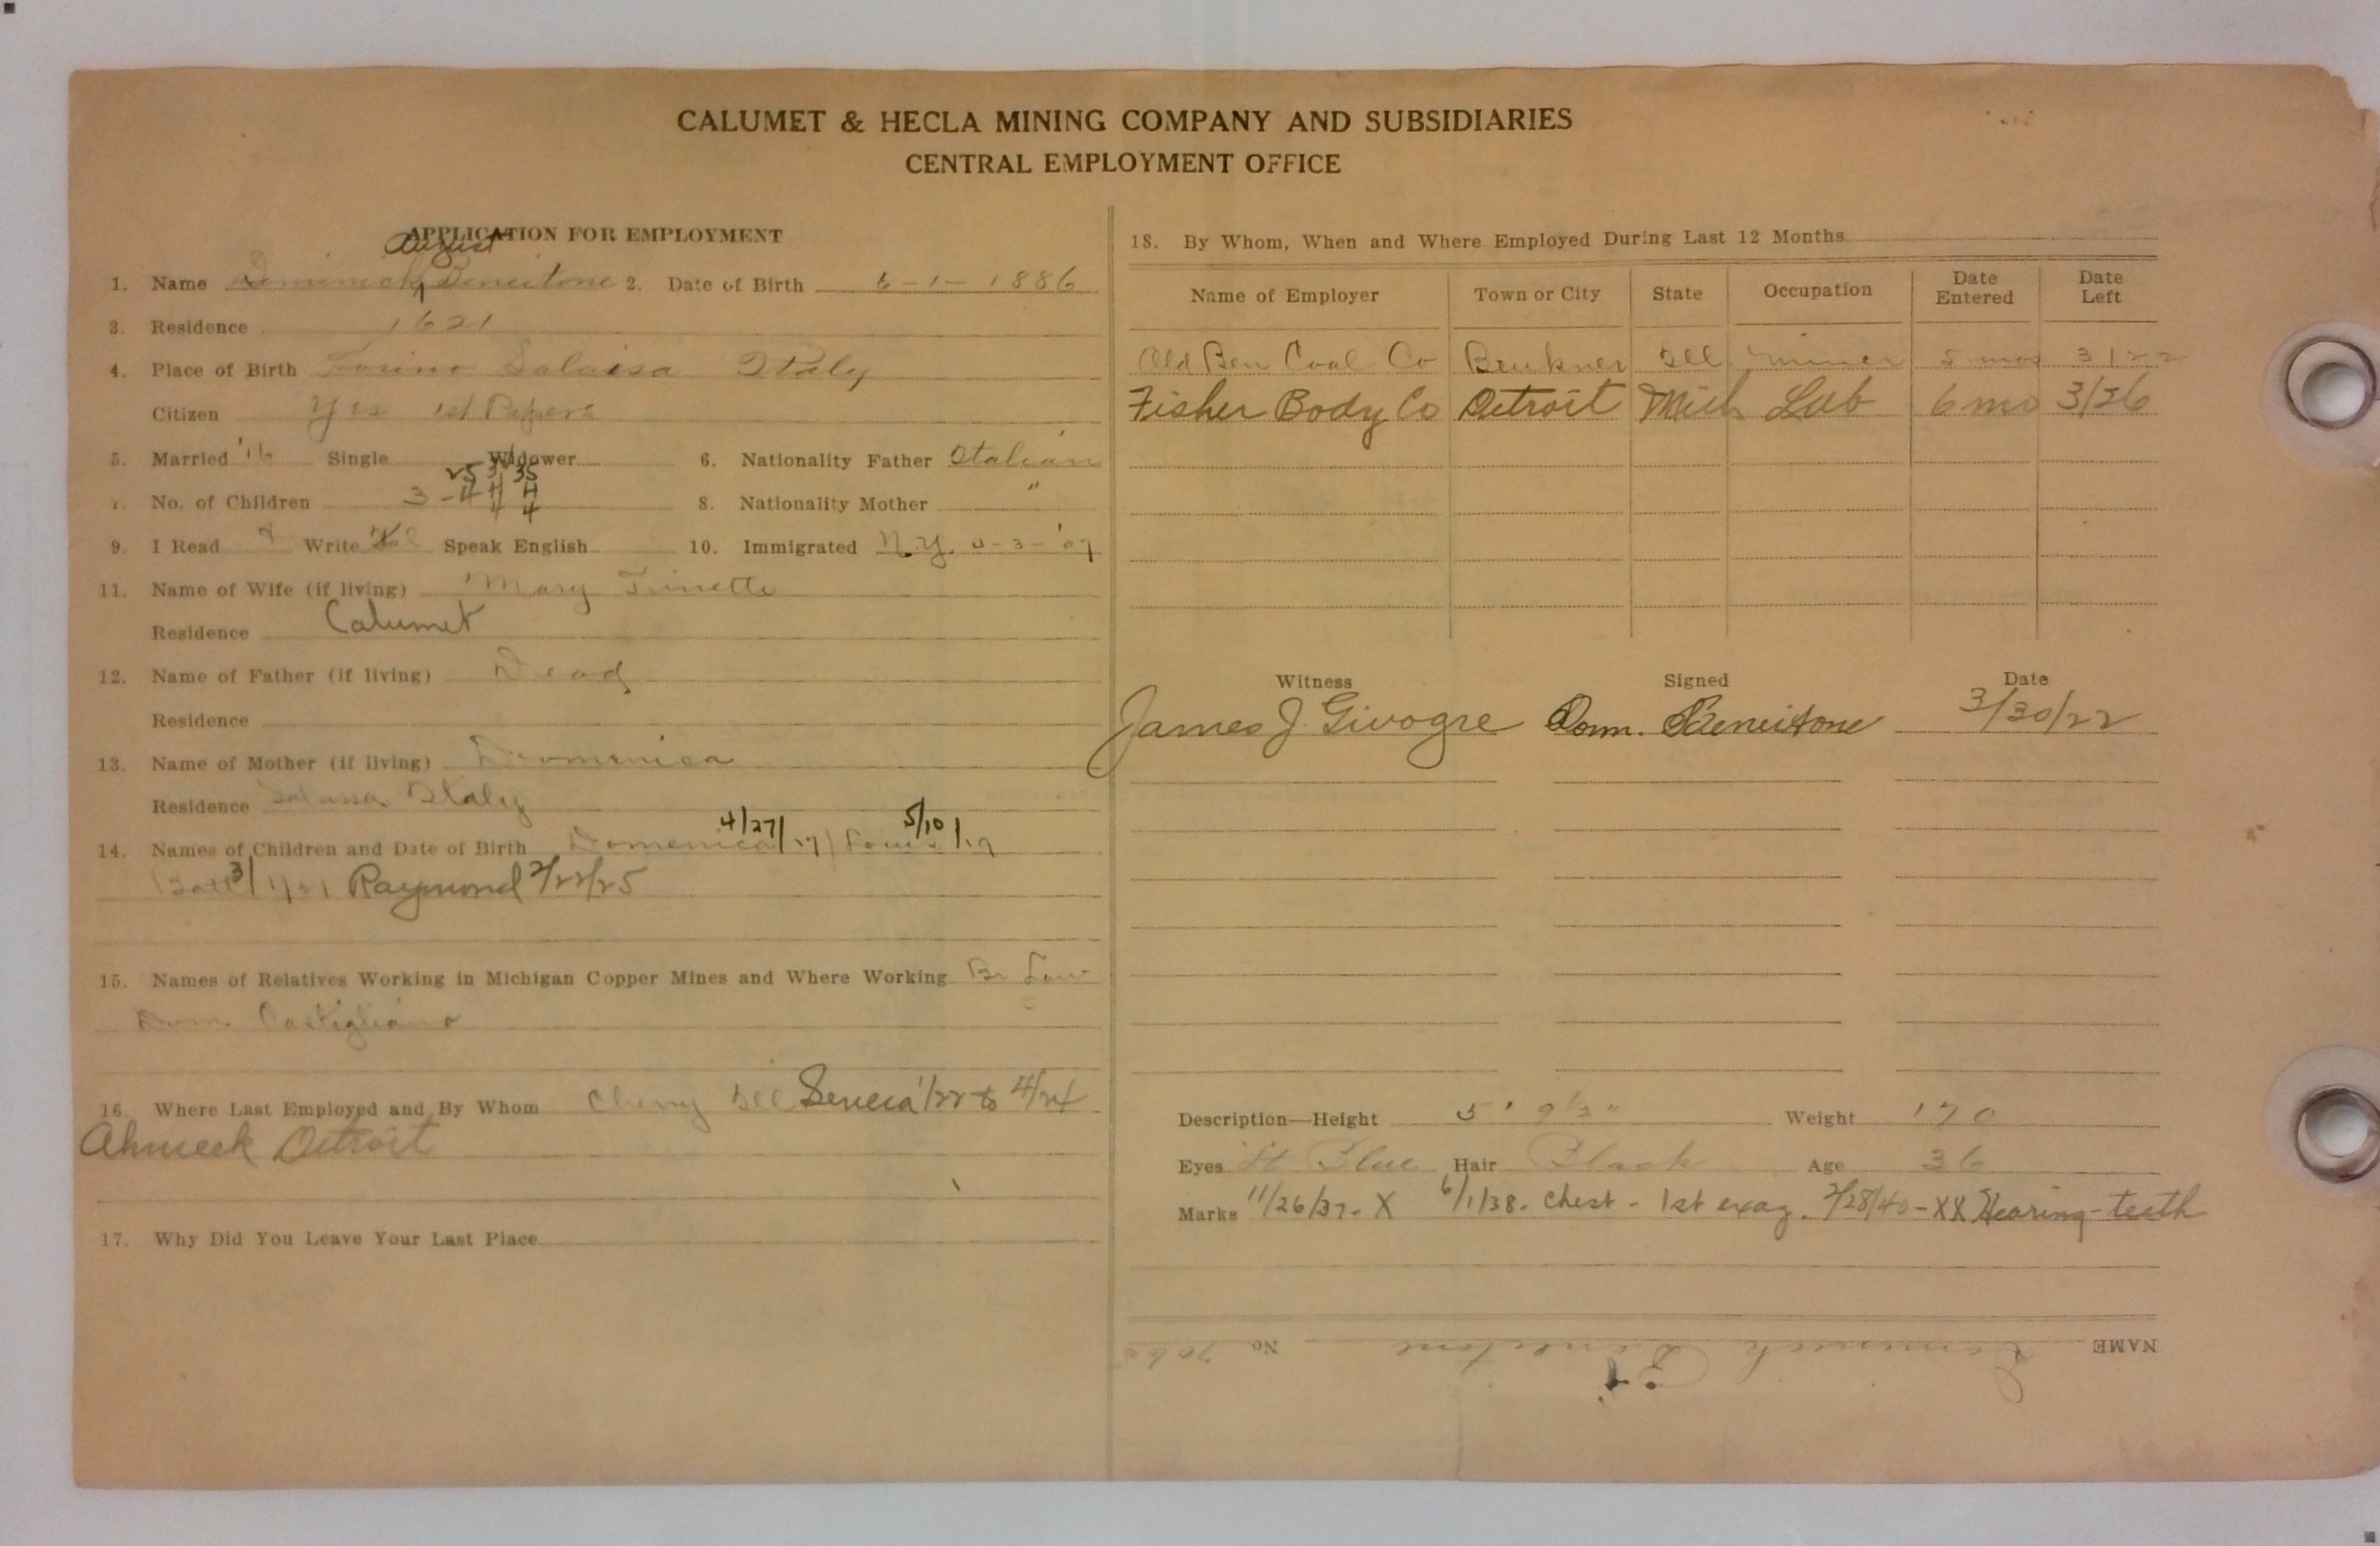 CALUMET & HECLA MINING COMPANY AND SUBSIDIARIES
CENTRAL EMPLOYMENT OFFICE
APPLICATION FOR EMPLOYMENT
August
1. Name Dominick 2. Date of Birth 6-1-1886
3. Residence 1621
4. Place of Birth Torino Italy
Citizen Yes 1st Papers
5. Married '16 Single Widower 6. Nationality Father Italian
25 35
7. No. of Children 3 - 4 4 4
4 4
8. Nationality Mother "
9. I Read Write Speak English 10. Immigrated N.Y. 3 - '09
11. Name of Wife (if living) Mary
Residence Calumet
12. Name of Father (if living) Dead
Residence
13. Name of Mother (if living) Domenica
Residence Italy
4/27/ 5/10/
14. Names of Children and Date of Birth Domenica 17 19
3/ 1/21 Raymond 2/22/25
15. Names of Relatives Working in Michigan Copper Mines and Where Working Br Law
Dom. Castigliano
16. Where Last Employed and By Whom Cherry Ill Seneca 1/22 to 4/24
Ahmeek Detroit
17. Why Did You Leave Your Last Place
18. By Whom, When and Where Employed During Last 12 Months
Name of Employer Town or City State Occupation Date Entered Date Left
Old Ben Coal Co Ill miner 5 mos 3/22
Fisher Body Co Detroit Mich Lab 6 mo 3/26
Witness Signed Date
James J. Givogre Dom. 3/30/22
Description—Height 5' 9½" Weight 170
Eyes Lt Blue Hair Black Age 36
Marks 11/26/37 - X 6/1/38 - Chest - 1st exag. 2/28/40 - XX Hearing - teeth
NAME Dominick No